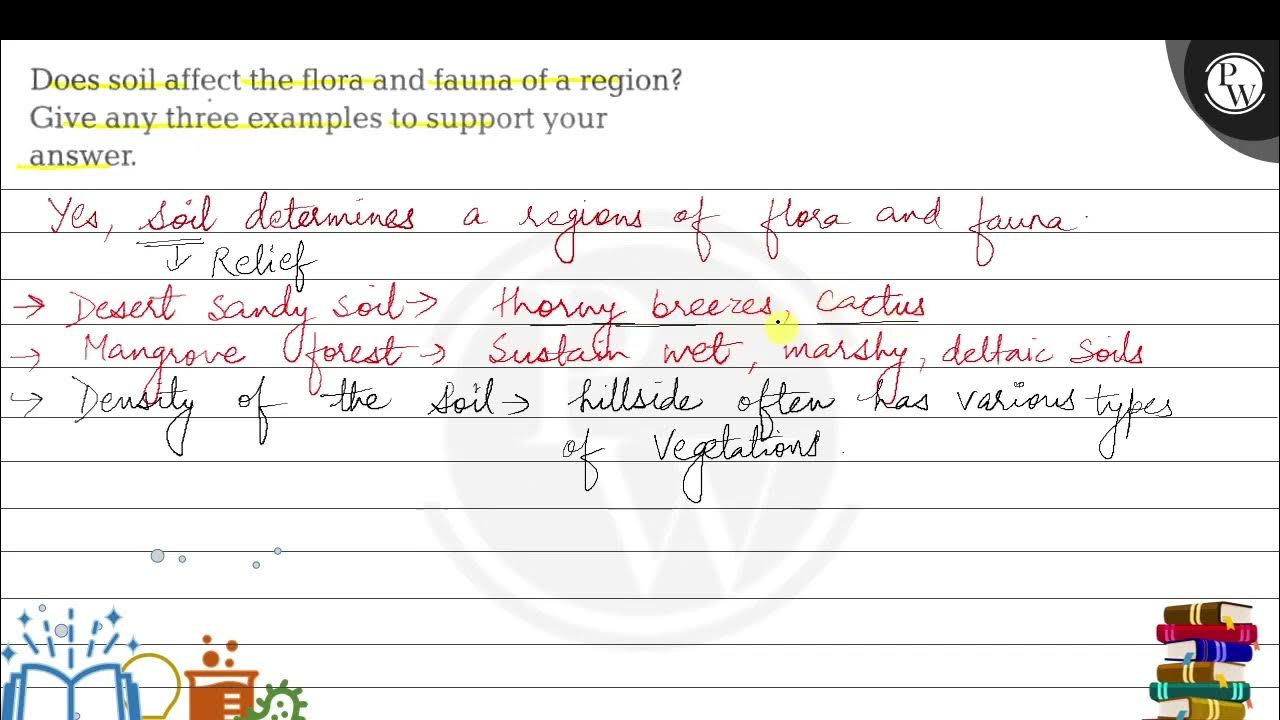 Does soil affect the flora and fauna of a region?
Give any three examples to support your
answer.
PW
Yes, soil determines a regions of flora and fauna.
↓ Relief
→ Desert sandy soil → thorny breezes, cactus
→ Mangrove forest → Sustain wet, marshy, deltaic soils
→ Density of the soil → hillside often has various types
of vegetations.
PW